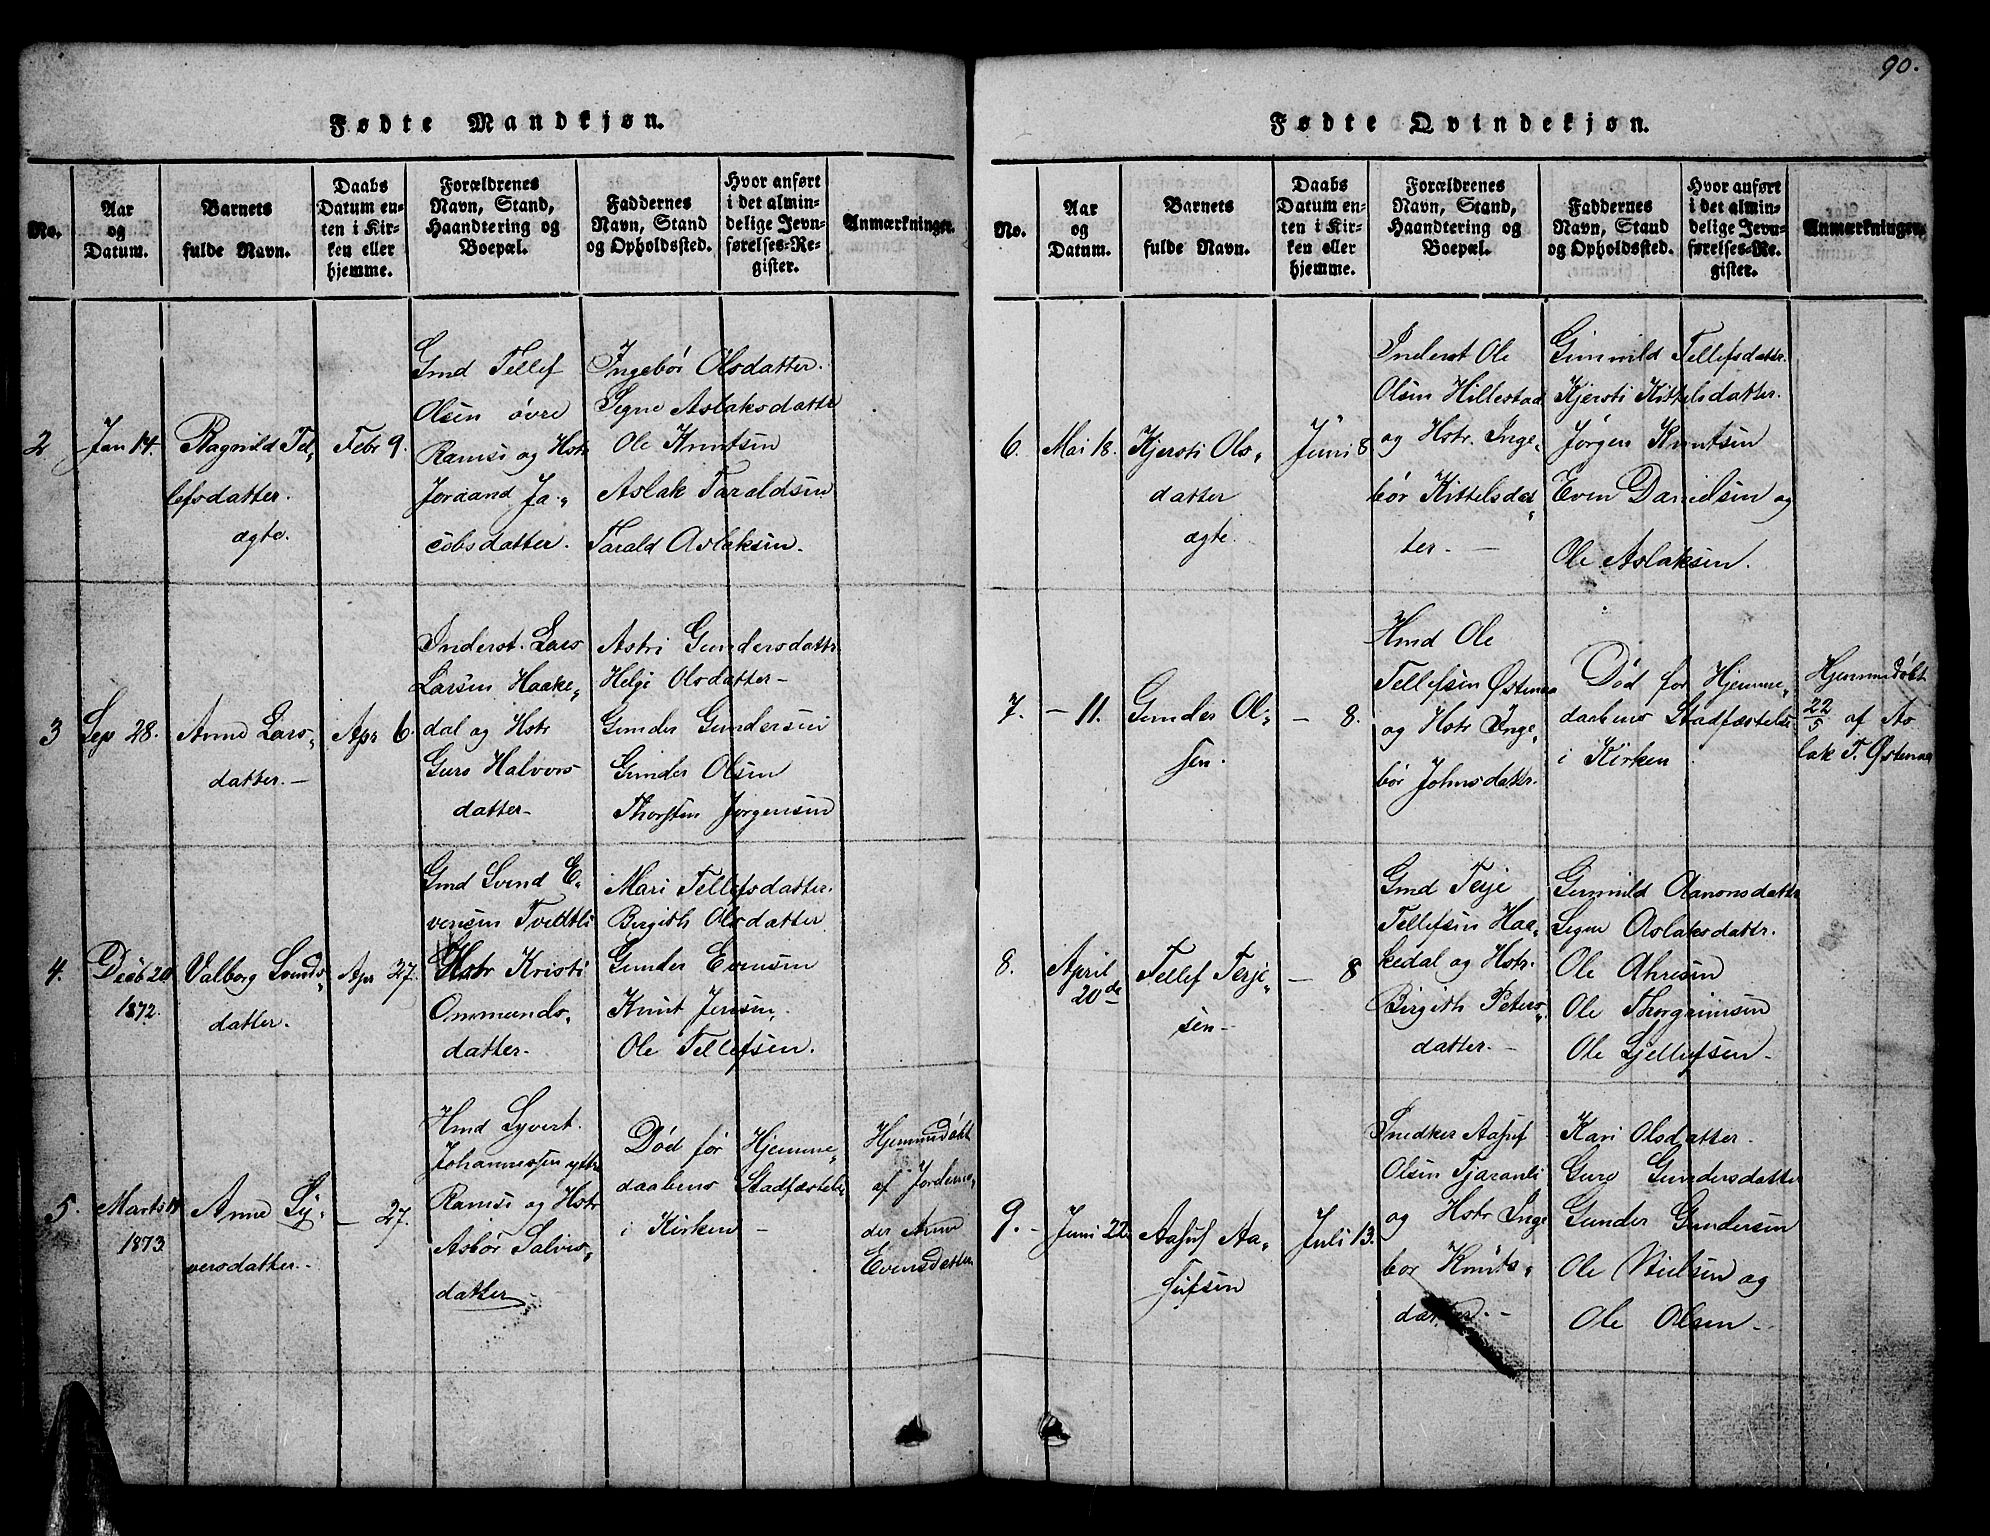 90.
Fødte Mandkjøn.
No.
Aar
og
Datum.
Barnets
fulde Navn.
Daabs
Datum en-
ten i Kir-
ken eller
hjemme.
Forældrenes
Navn, Stand,
Haandtering og
Boepæl.
Faddernes
Navn, Stand
og Opholdssted.
Hvor anført
i det almin-
delige Jevn-
førelses-Re-
gister.
Anmærkninger.
2
Jan 14.
Ragnild Tel-
lefsdatter.
ægte.
Febr 9.
Gmd Tellef
Olsen øvre
Ramse og Hstr
Joraand Ja-
cobsdatter.
Ingebór Olsdatter.
Segne Aslaksdattr
Ole Knutsen
Aslak Taraldsen
Tarald Aslaksen.
3
Sep 28.
Anne Lars-
datter. -
Apr 6.
Inderst. Lars
Larsen Haake-
dal og Hstr
Guro Halvors
datter -
Astri Gundersdattr
Helge Olsdatter -
Gunder Gundersen
Gunder Olsen
Thorsten Jörgensen
4.
Decb 20
1872.
Valborg Svends-
datter.
Apr 27.
Gmd Svend E-
vensen Tveidtli
Hstr Kristi
Ommunds-
datter -
Mari Tellefsdatter.
Birgith Olsdatter
Gunder Evensen
Knut Jensen.
Ole Tellefsen.
5.
Marts 14
1873.
Anne Sy-
versdatter. -
- 27.
Hmd Syvert
Johannessen yttre
Ramse og Hstr
Asbör Salves-
datter
Død før Hjemme-
daabens Stadfæstelse
i Kirken -
Hjemmedøbt
af Jordemo-
der Anne
Evensdatter
Fødte Qvindekjøn.
No.
Aar
og
Datum.
Barnets
fulde Navn.
Daabs
Datum en-
ten i Kir-
ken eller
hjemme.
Forældrenes
Navn, Stand,
Haandtering og
Boepæl.
Faddernes
Navn, Stand
og Opholdssted.
Hvor anført
i det almin-
delige Jevn-
førelses-Re-
gister.
Anmærkninger.
6.
Mai 18.
Kjersti Ols-
datter
ægte.
Juni 8
Inderst Ole
Olsen Hillestad
og Hstr. Inge-
bór Kittelsdat-
ter. -
Gunnild Tellefsdattr.
Kjersti Kittelsdatter.
Jörgen Knutsen
Even Danielsen og
Ole Aslaksen.
7.
- 11.
Gunder Ol-
sen.
- 8.
Hmd Ole
Tellefsen Østenaa
og Hstr Inge-
bór Johnsdatter.
Død før Hjemme-
daabens Stadfæstelse
i Kirken
Hjemmedøbt
22/5 af As-
lak T. Østenaa
8.
April
20de
Tellef Terje-
sen -
- 8
Gmd Terje
Tellefsen Haa-
kedal og Hstr.
Birgith Peters-
datter. -
Gunnild Aanonsdattr
Signe Aslaksdattr.
Ole Ahresen
Ole Thorgrimsen
Ole Gjellufsen -
9. -
Juni 22.
Aasuf Aa-
sufsen
Juli 13.
Snedker Aasuf
Olsen Tjaranli
og Hstr Inge
bor Knuts-
datter. -
Kari Olsdatter.
Guro Gundersdatter
Gunder Gundersen
Ole Nielsen og
Ole Olsen -